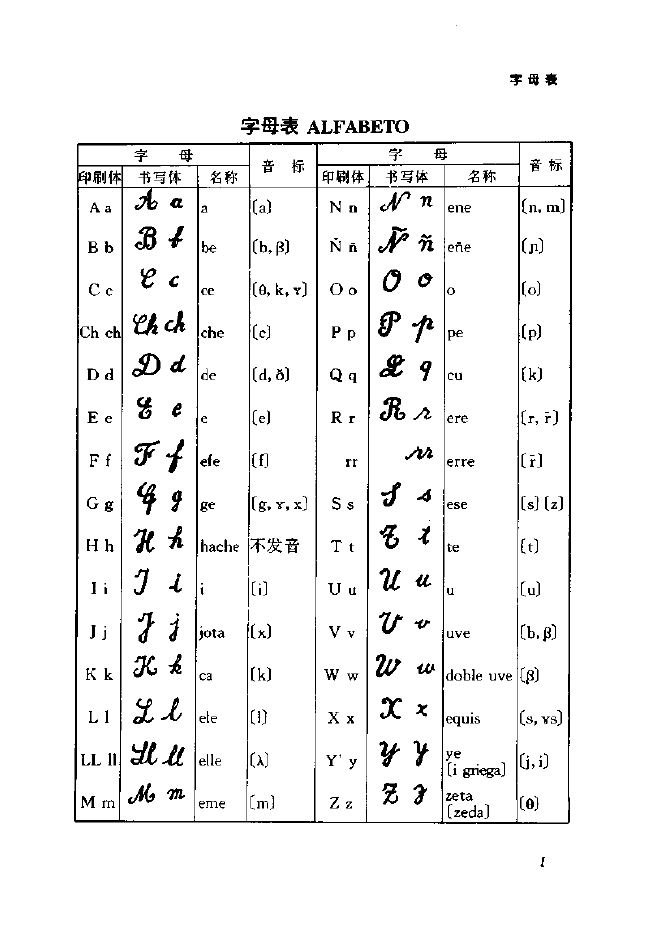 字母表
字母表 ALFABETO
字 母 音 标 字 母 音 标
印刷体 书写体 名称 印刷体 书写体 名称
A a A a a [a] N n N n ene [n, m]
B b B b be [b, β] Ñ ñ Ñ ñ eñe [ɲ]
C c C c ce [θ, k, ɤ] O o O o o [o]
Ch ch Ch ch che [c] P p P p pe [p]
D d D d de [d, ð] Q q Q q cu [k]
E e E e e [e] R r R r ere [r, r̄]
F f F f efe [f] rr rr erre [r̄]
G g G g ge [g, ɤ, x] S s S s ese [s] [z]
H h H h hache 不发音 T t T t te [t]
I i I i i [i] U u U u u [u]
J j J j jota [x] V v V v uve [b, β]
K k K k ca [k] W w W w doble uve [β]
L l L l ele [l] X x X x equis [s, ɤs]
LL ll Ll ll elle [λ] Y y Y y ye [i griega] [j, i]
M m M m eme [m] Z z Z z zeta [zeda] [θ]
1